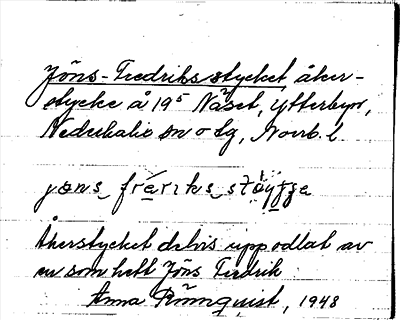 Jöns-Fredriksstycket, åker-
stycke å 19⁵ Näset, Ytterbyn,
Nederkalix sn o tg, Norrb. l.
Åkerstycket delvis uppodlat av
en som hett Jöns Fredrik
Anna Rönnquist, 1948